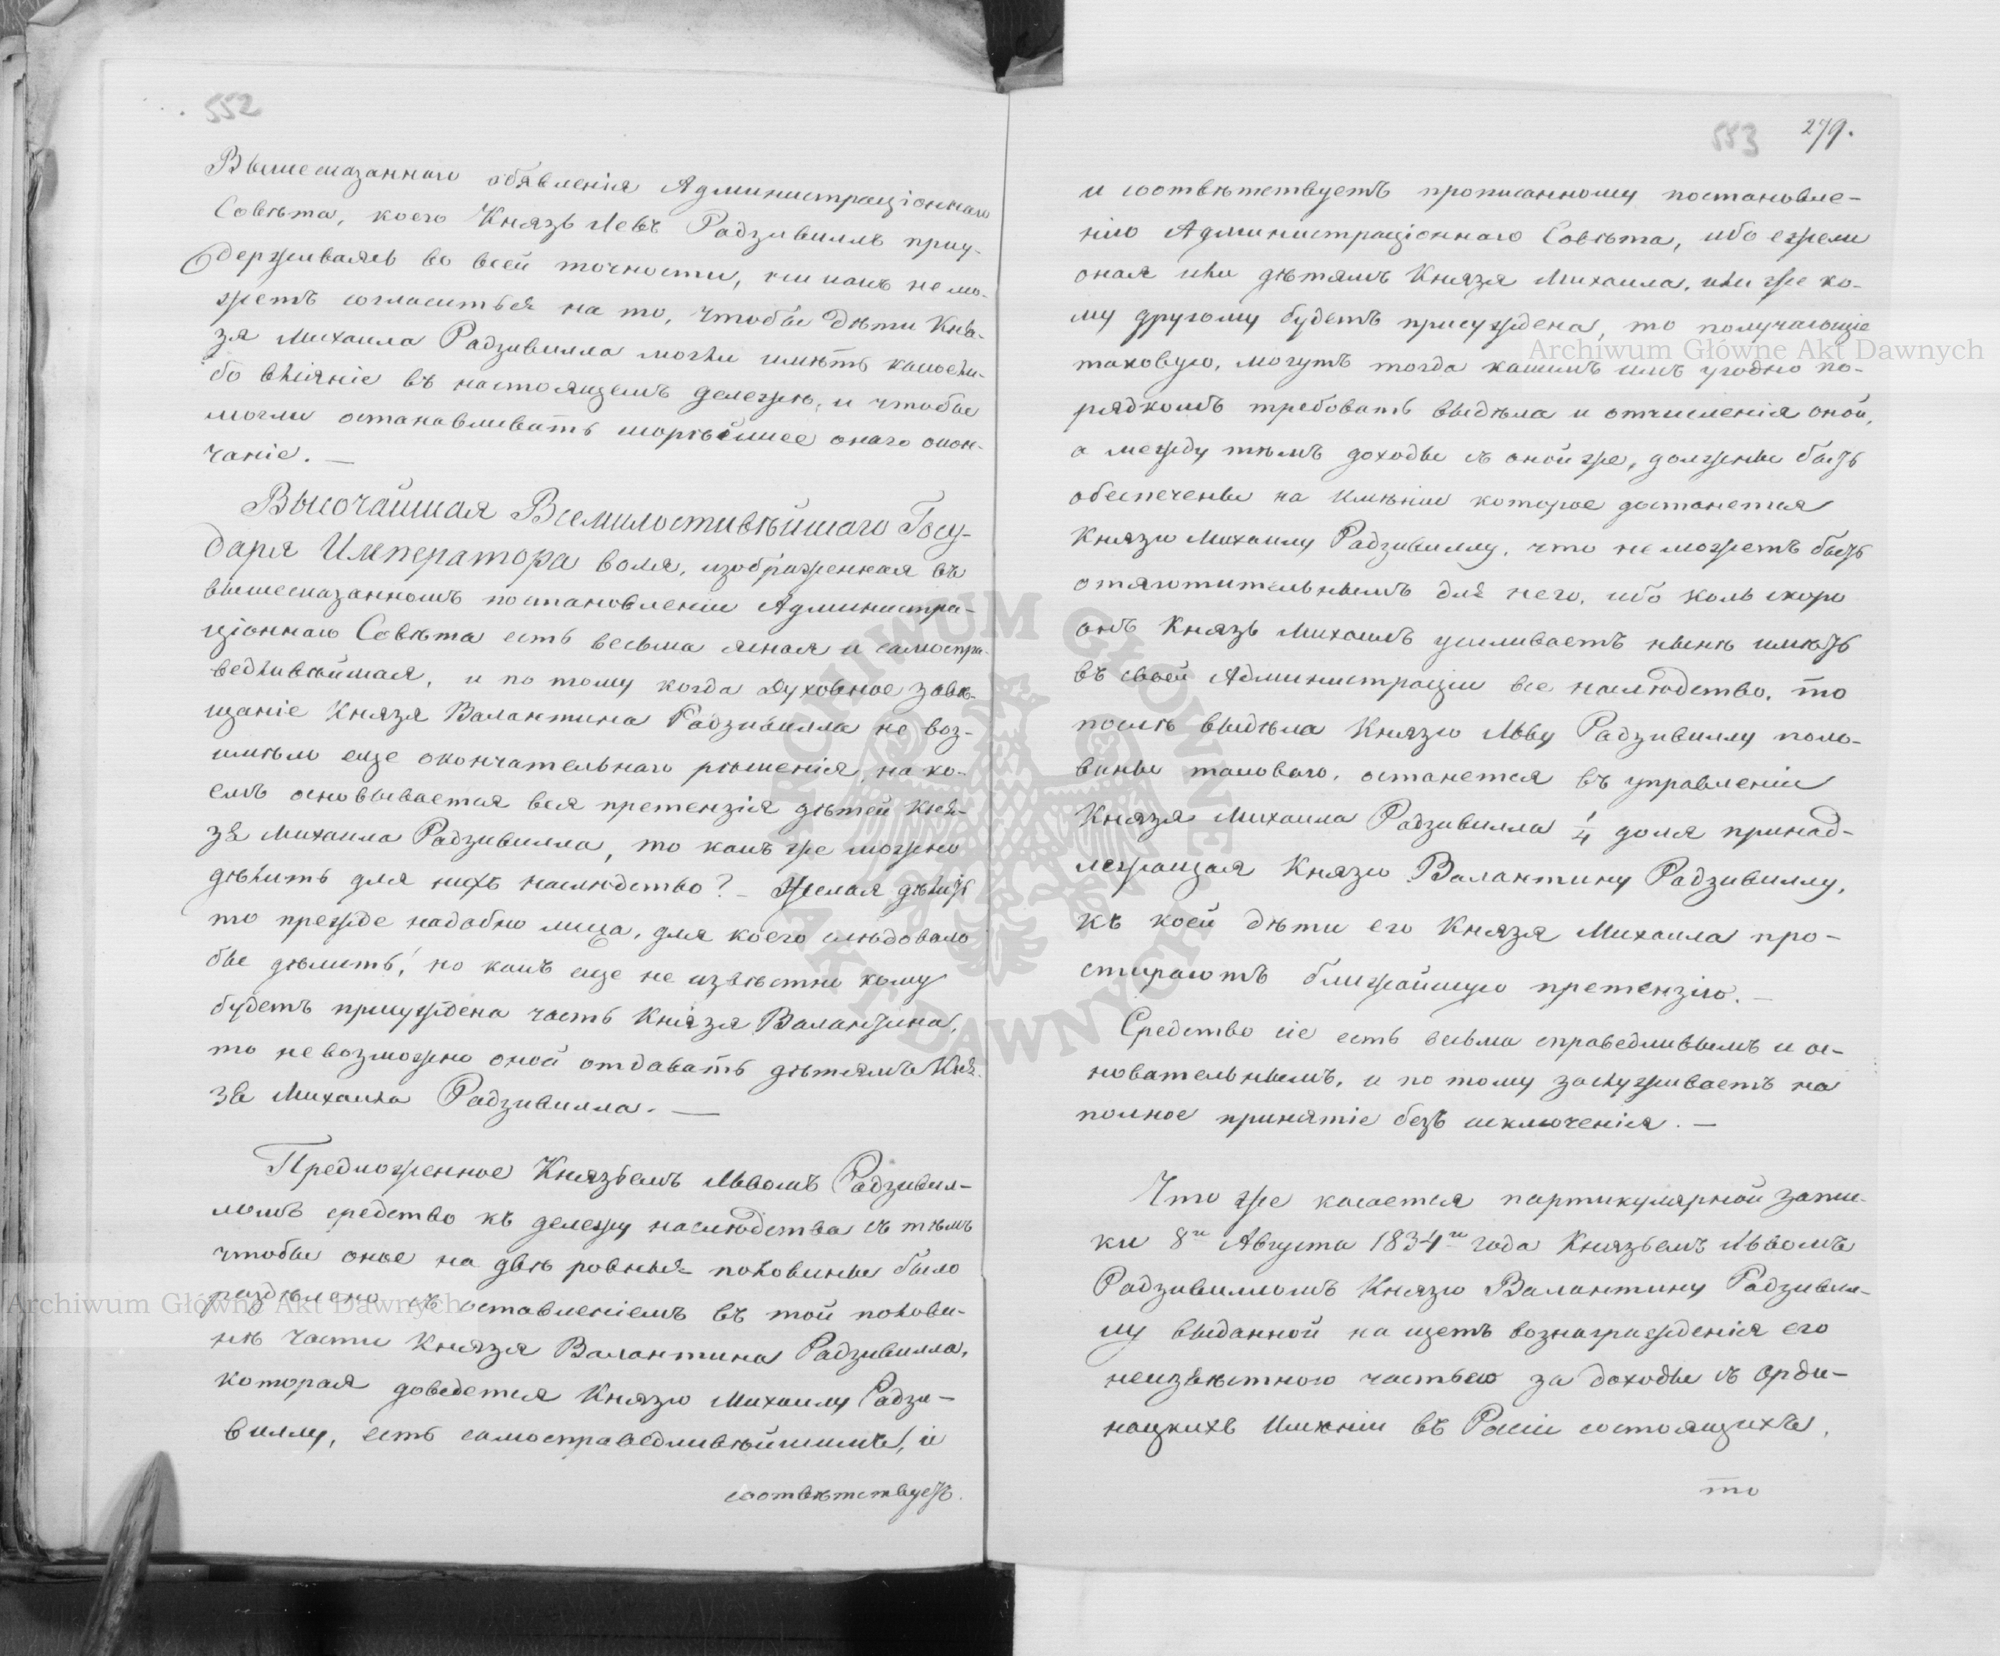 552
Вышесказаннаго объявленія Администраціоннаго
Совѣта, коего Князь Левъ Радзивиллъ приу-
держиваясь во всей точности, ни какъ не мо-
жетъ согласиться на то, чтобы дѣти Кня-
зя Михаила Радзивилла могли имѣть какоели-
бо вліяніе въ настоящемъ дележѣ, и чтобы
могли останавливать скорѣйшее онаго окон-
чаніе. —
Высочайшая Всемилостивѣйшаго Госу-
даря Императора воля, изображенная въ
вышесказанномъ постановленіи Администра-
ціоннаго Совѣта есть весьма ясная и самоспра-
ведливѣйшая, и по тому когда Духовное завѣ-
щаніе Князя Валантина Радзивилла не воз-
имѣло еще окончательнаго рѣшенія, на ко-
емъ основывается вся претензія дѣтей Кня-
зя Михаила Радзивилла, то какъ же можно
дѣлить для нихъ наслѣдство? – Желая дѣлить
то прежде надобно лица, для коего слѣдовало
бы дѣлить, но какъ еще не извѣстно кому
будетъ присуждена часть Князя Валантина,
то невозможно оной отдавать дѣтямъ Кня-
зя Михаила Радзивилла. —
Предложенное Княземъ Львомъ Радзивил-
ломъ средство къ дележу наслѣдства съ тѣмъ
чтобы оное на двѣ ровныя половины было
раздѣлено съ оставленіемъ въ той полови-
нѣ части Князя Валантина Радзивилла,
которая доведется Князю Михаилу Радзи-
виллу, есть самосправедливѣйшимъ, и
соотвѣтствуетъ
553 279.
и соотвѣтствуетъ прописанному постановле-
нію Администраціоннаго Совѣта, ибо ежели
оная или дѣтямъ Князя Михаила, или же ко-
му другому будетъ присуждена, то получающіе
таковую, могутъ тогда какимъ имъ угодно по-
рядкомъ требовать выдѣла и отчисленія оной,
а между тѣмъ доходы съ оной же, должны быть
обеспечены на имѣніи которое достанется
Князю Михаилу Радзивиллу, что не можетъ быть
отяготительнымъ для него, ибо коль скоро
онъ Князь Михаилъ усиливаетъ нынѣ имѣть
въ своей Администраціи все наслѣдство, то
послѣ выдѣла Князю Льву Радзивиллу поло-
вины таковаго, останется въ управленіи
Князя Михаила Радзивилла 1/4 доля принад-
лежащая Князю Валантину Радзивиллу,
къ коей дѣти его Князя Михаила про-
стираютъ ближайшую претензію. —
Средство сіе есть весьма справедливымъ и ос-
новательнымъ, и по тому заслуживаетъ на
полное принятіе безъ исключенія. —
Что же касается партикулярной запис-
ки 8го Августа 1834го года Княземъ Львомъ
Радзивилломъ Князю Валантину Радзивил-
лу выданной на щетъ вознагражденія его
неизвѣстною частью за доходы съ Орди-
нацкихъ имѣніи въ Росіи состоящихъ,
то
Archiwum Główne Akt Dawnych
Archiwum Główne Akt Dawnych
ARCHIWUM GŁÓWNE AKT DAWNYCH